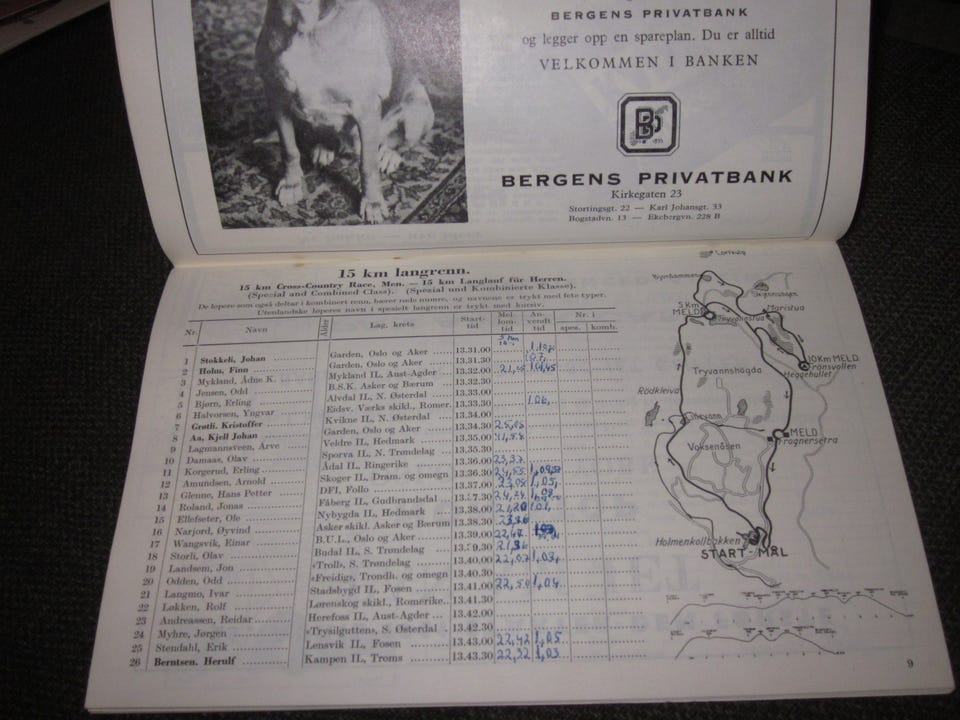 BERGENS PRIVATBANK
og legger opp en spareplan. Du er alltid
VELKOMMEN I BANKEN
BERGENS PRIVATBANK
Kirkegaten 23
Stortingsgt. 22 — Karl Johansgt. 33
Bogstadvn. 13 — Ekebergvn. 228 B
15 km langrenn.
15 km Cross-Country Race, Men. — 15 km Langlauf für Herren.
(Spezial and Combined Class). (Spezial und Kombinierte Klasse).
De løpere som også deltar i kombinert renn, bærer røde numre, og navnene er trykt med fete typer.
Utenlandske løperes navn i spesielt langrenn er trykt med kursiv.
Nr. Navn Alder Lag, krets Start-tid Mellomtid Anvendt tid Nr. i spes. komb.
1 Stokkeli, Johan Garden, Oslo og Aker 13.31.00
2 Holm, Finn Garden, Oslo og Aker 13.31.30
3 Mykland, Ådne K. Mykland IL, Aust-Agder 13.32.00
4 Jensen, Odd B.S.K. Asker og Bærum 13.32.30
5 Bjørn, Erling Alvdal IL, N. Østerdal 13.33.00
6 Halvorsen, Yngvar Eidsv. Værks skikl., Romer. 13.33.30
7 Grøtli. Kristoffer Kvikne IL, N. Østerdal 13.34.00
8 Aa, Kjell Johan Garden, Oslo og Aker 13.34.30
9 Lagmannsveen, Arve Veldre IL, Hedmark 13.35.00
10 Damaas, Olav Sporva IL, N. Trøndelag 13.35.30
11 Korgerud, Erling Ådal IL, Ringerike 13.36.00 23,37
12 Amundsen, Arnold Skoger IL, Dram. og omegn 13.36.30 24,55
13 Glenne, Hans Petter DFI, Follo 13.37.00 1,05,
14 Roland, Jonas Fåberg IL, Gudbrandsdal 13.37.30
15 Ellefsæter, Ole Nybygda IL, Hedmark 13.38.00
16 Narjord, Øyvind Asker skikl. Asker og Bærum 13.38.30
17 Wangsvik, Einar B.U.L., Oslo og Aker 13.39.00
18 Storli, Olav Budal IL, S. Trøndelag 13.39.30 21,36
19 Landsem, Jon «Troll», S. Trøndelag 13.40.00 22,07 1,03,
20 Odden, Odd «Freidig», Trondh. og omegn 13.40.30
21 Langmo, Ivar Stadsbygd IL, Fosen 13.41.00 22,50 1,04
22 Løkken, Rolf Lørenskog skikl., Romerike 13.41.30
23 Andreassen, Reidar Herefoss IL, Aust-Agder 13.42.00
24 Myhre, Jørgen «Trysilgutten», S. Østerdal 13.42.30
25 Stendahl, Erik Lensvik IL, Fosen 13.43.00 22,42 1,05
26 Berntsen, Herulf Kampen IL, Troms 13.43.30 22,32 1,03
Bjørndammene
5 Km
MELD
Tryvannstua
Maristua
10 Km MELD
Tryvannshøgda
Rödkleiva
Heggehullet
MELD
Frognersetra
Voksenåsen
Holmenkollbakken
START-MÅL
9